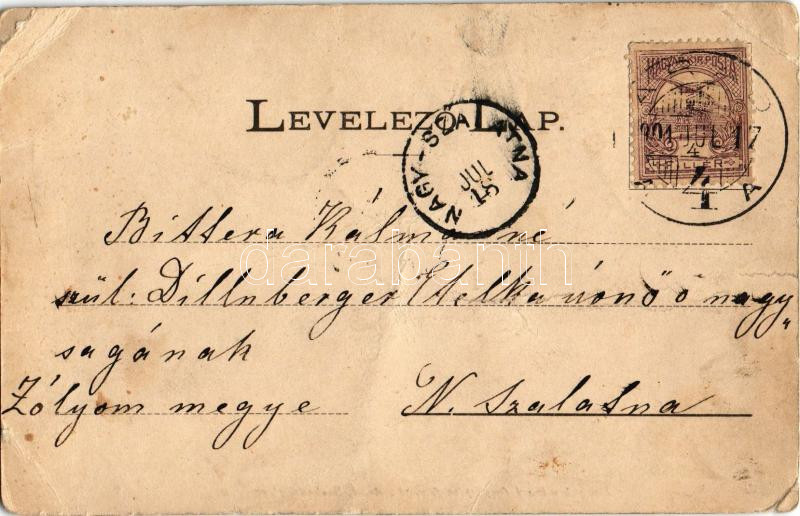 LEVELEZŐ-LAP.
MAGYAR KIR. POSTA
FILLÉR
901 JUL 17
4
NAGY-SZALATNA
JUL
18
Bittera Kálmánné
szül: Dillnberger Etelka úrnő ő nagy„
ságának
Zólyom megye N. Szalatna
darabanth